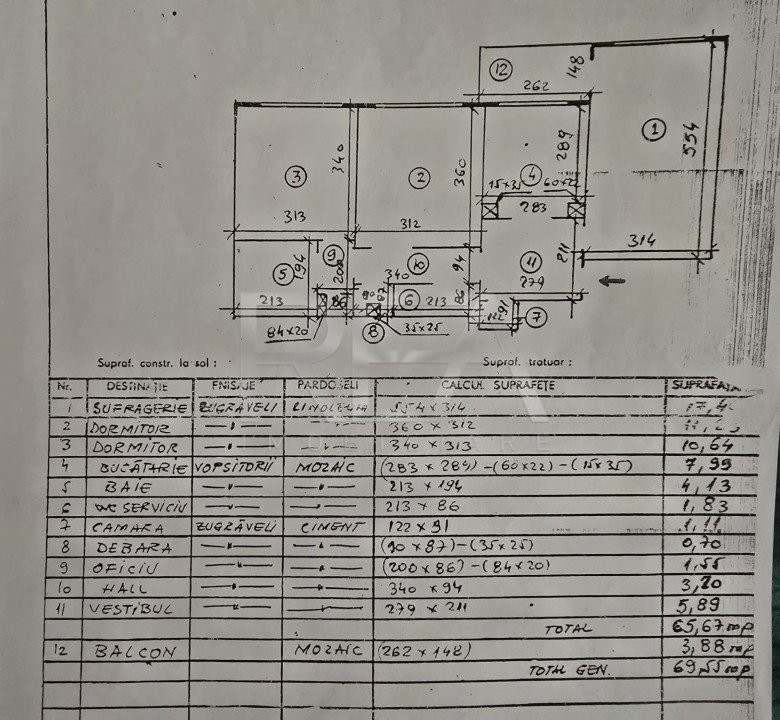 12
148
262
1
554
289
4
15x35 60x22
283
340
3
2
360
313
312
314
9
10
94
11
211
5
194
200
340
279
213
86
90
87
6
213
86
122
91
7
84x20
8
35x25
Supraf. constr. la sol :
Supraf. trotuar :
Nr. DESTINAȚIE FNISAJE PARDOSELI CALCUL SUPRAFEȚE SUPRAFAȚA
1 SUFRAGERIE ZUGRĂVELI LINOLEUM 554 x 314 17,4
2 DORMITOR —"— —"— 360 x 312
3 DORMITOR —"— —"— 340 x 313 10,64
4 BUCĂTARIE VOPSITORII MOZAIC (283 x 289) - (60x22) - (15x35) 7,99
5 BAIE —"— —"— 213 x 194 4,13
6 WC SERVICIU —"— —"— 213 x 86 1,83
7 CAMARA ZUGRĂVELI CIMENT 122 x 91 1,11
8 DEBARA —"— —"— (90 x 87) - (35 x 25) 0,70
9 OFICIU —"— —"— (200 x 86) - (84 x 20) 1,55
10 HALL —"— —"— 340 x 94 3,20
11 VESTIBUL —"— —"— 279 x 211 5,89
TOTAL 65,67 mp
12 BALCON MOZAIC (262 x 148) 3,88 mp
TOTAL GEN. 69,55 mp